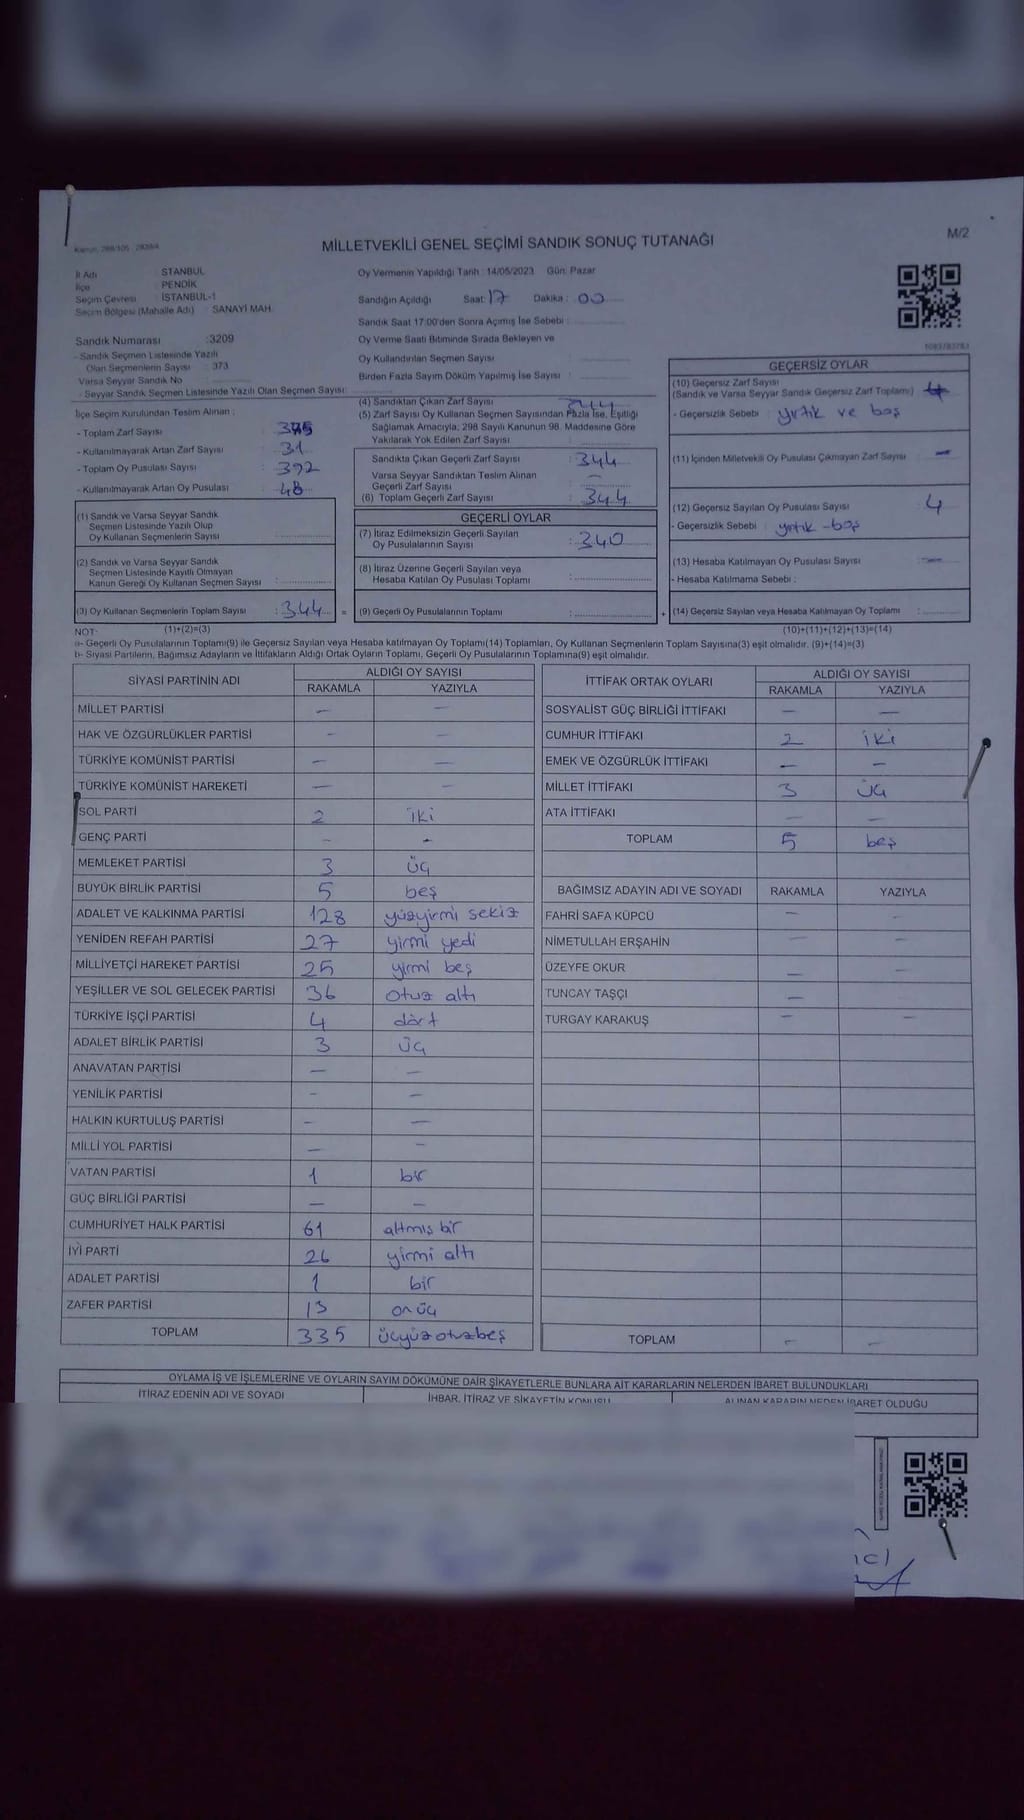 MİLLETVEKİLİ GENEL SEÇİMİ SANDIK SONUÇ TUTANAĞI
M/2
İl Adı : STANBUL
İlçe : PENDİK
Seçim Çevresi : İSTANBUL-1
Seçim Bölgesi (Mahalle Adı) SANAYİ MAH.
Oy Vermenin Yapıldığı Tarih : 14/05/2023 Gün: Pazar
Sandığın Açıldığı Saat: 17 Dakika : 00
Sandık Saat 17:00'den Sonra Açılmış İse Sebebi :
Oy Verme Saati Bitiminde Sırada Bekleyen ve
Oy Kullandırılan Seçmen Sayısı :
Birden Fazla Sayım Döküm Yapılmış İse Sayısı :
Sandık Numarası :3209
- Sandık Seçmen Listesinde Yazılı
Olan Seçmenlerin Sayısı : 373
Varsa Seyyar Sandık No
- Seyyar Sandık Seçmen Listesinde Yazılı Olan Seçmen Sayısı:
İlçe Seçim Kurulundan Teslim Alınan :
- Toplam Zarf Sayısı :
- Kullanılmayarak Artan Zarf Sayısı : 31
- Toplam Oy Pusulası Sayısı : 392
- Kullanılmayarak Artan Oy Pusulası : 48
(1) Sandık ve Varsa Seyyar Sandık
Seçmen Listesinde Yazılı Olup
Oy Kullanan Seçmenlerin Sayısı :
(2) Sandık ve Varsa Seyyar Sandık
Seçmen Listesinde Kayıtlı Olmayan
Kanun Gereği Oy Kullanan Seçmen Sayısı :
(3) Oy Kullanan Seçmenlerin Toplam Sayısı : 344 =
(4) Sandıktan Çıkan Zarf Sayısı : 344
(5) Zarf Sayısı Oy Kullanan Seçmen Sayısından Fazla İse, Eşitliği
Sağlamak Amacıyla; 298 Sayılı Kanunun 98. Maddesine Göre
Yakılarak Yok Edilen Zarf Sayısı :
Sandıkta Çıkan Geçerli Zarf Sayısı : 344
Varsa Seyyar Sandıktan Teslim Alınan
Geçerli Zarf Sayısı : —
(6) Toplam Geçerli Zarf Sayısı : 344
GEÇERLİ OYLAR
(7) İtiraz Edilmeksizin Geçerli Sayılan
Oy Pusulalarının Sayısı : 340
(8) İtiraz Üzerine Geçerli Sayılan veya
Hesaba Katılan Oy Pusulası Toplamı :
(9) Geçerli Oy Pusulalarının Toplamı : +
GEÇERSİZ OYLAR
(10) Geçersiz Zarf Sayısı
(Sandık ve Varsa Seyyar Sandık Geçersiz Zarf Toplamı) :
- Geçersizlik Sebebi : yırtık ve boş
(11) İçinden Milletvekili Oy Pusulası Çıkmayan Zarf Sayısı : —
(12) Geçersiz Sayılan Oy Pusulası Sayısı : 4
- Geçersizlik Sebebi : yırtık - boş
(13) Hesaba Katılmayan Oy Pusulası Sayısı : —
- Hesaba Katılmama Sebebi :
(14) Geçersiz Sayılan veya Hesaba Katılmayan Oy Toplamı :
NOT: (1)+(2)=(3) (10)+(11)+(12)+(13)=(14)
a- Geçerli Oy Pusulalarının Toplamı(9) ile Geçersiz Sayılan veya Hesaba katılmayan Oy Toplamı(14) Toplamları, Oy Kullanan Seçmenlerin Toplam Sayısına(3) eşit olmalıdır. (9)+(14)=(3)
b- Siyasi Partilerin, Bağımsız Adayların ve İttifakların Aldığı Ortak Oyların Toplamı, Geçerli Oy Pusulalarının Toplamına(9) eşit olmalıdır.
SİYASİ PARTİNİN ADI ALDIĞI OY SAYISI
RAKAMLA YAZIYLA
MİLLET PARTİSİ — —
HAK VE ÖZGÜRLÜKLER PARTİSİ — —
TÜRKİYE KOMÜNİST PARTİSİ — —
TÜRKİYE KOMÜNİST HAREKETİ — —
SOL PARTİ 2 iki
GENÇ PARTİ — —
MEMLEKET PARTİSİ 3 üç
BÜYÜK BİRLİK PARTİSİ 5 beş
ADALET VE KALKINMA PARTİSİ 128 yüzyirmi sekiz
YENİDEN REFAH PARTİSİ 27 yirmi yedi
MİLLİYETÇİ HAREKET PARTİSİ 25 yirmi beş
YEŞİLLER VE SOL GELECEK PARTİSİ 36 otuz altı
TÜRKİYE İŞÇİ PARTİSİ 4 dört
ADALET BİRLİK PARTİSİ 3 üç
ANAVATAN PARTİSİ — —
YENİLİK PARTİSİ — —
HALKIN KURTULUŞ PARTİSİ — —
MİLLİ YOL PARTİSİ — —
VATAN PARTİSİ 1 bir
GÜÇ BİRLİĞİ PARTİSİ — —
CUMHURİYET HALK PARTİSİ 61 altmış bir
İYİ PARTİ 26 yirmi altı
ADALET PARTİSİ 1 bir
ZAFER PARTİSİ 13 onüç
TOPLAM 335 üçyüzotuzbeş
İTTİFAK ORTAK OYLARI ALDIĞI OY SAYISI
RAKAMLA YAZIYLA
SOSYALİST GÜÇ BİRLİĞİ İTTİFAKI — —
CUMHUR İTTİFAKI 2 iki
EMEK VE ÖZGÜRLÜK İTTİFAKI — —
MİLLET İTTİFAKI 3 üç
ATA İTTİFAKI — —
TOPLAM 5 beş
BAĞIMSIZ ADAYIN ADI VE SOYADI RAKAMLA YAZIYLA
FAHRİ SAFA KÜPCÜ — —
NİMETULLAH ERŞAHİN — —
ÜZEYFE OKUR — —
TUNCAY TAŞÇI —
TURGAY KARAKUŞ — —
TOPLAM — —
OYLAMA İŞ VE İŞLEMLERİNE VE OYLARIN SAYIM DÖKÜMÜNE DAİR ŞİKAYETLERLE BUNLARA AİT KARARLARIN NELERDEN İBARET BULUNDUKLARI
İTİRAZ EDENİN ADI VE SOYADI İHBAR, İTİRAZ VE ŞİKAYETİN KONUSU ALINAN KARARIN NEDEN İBARET OLDUĞU